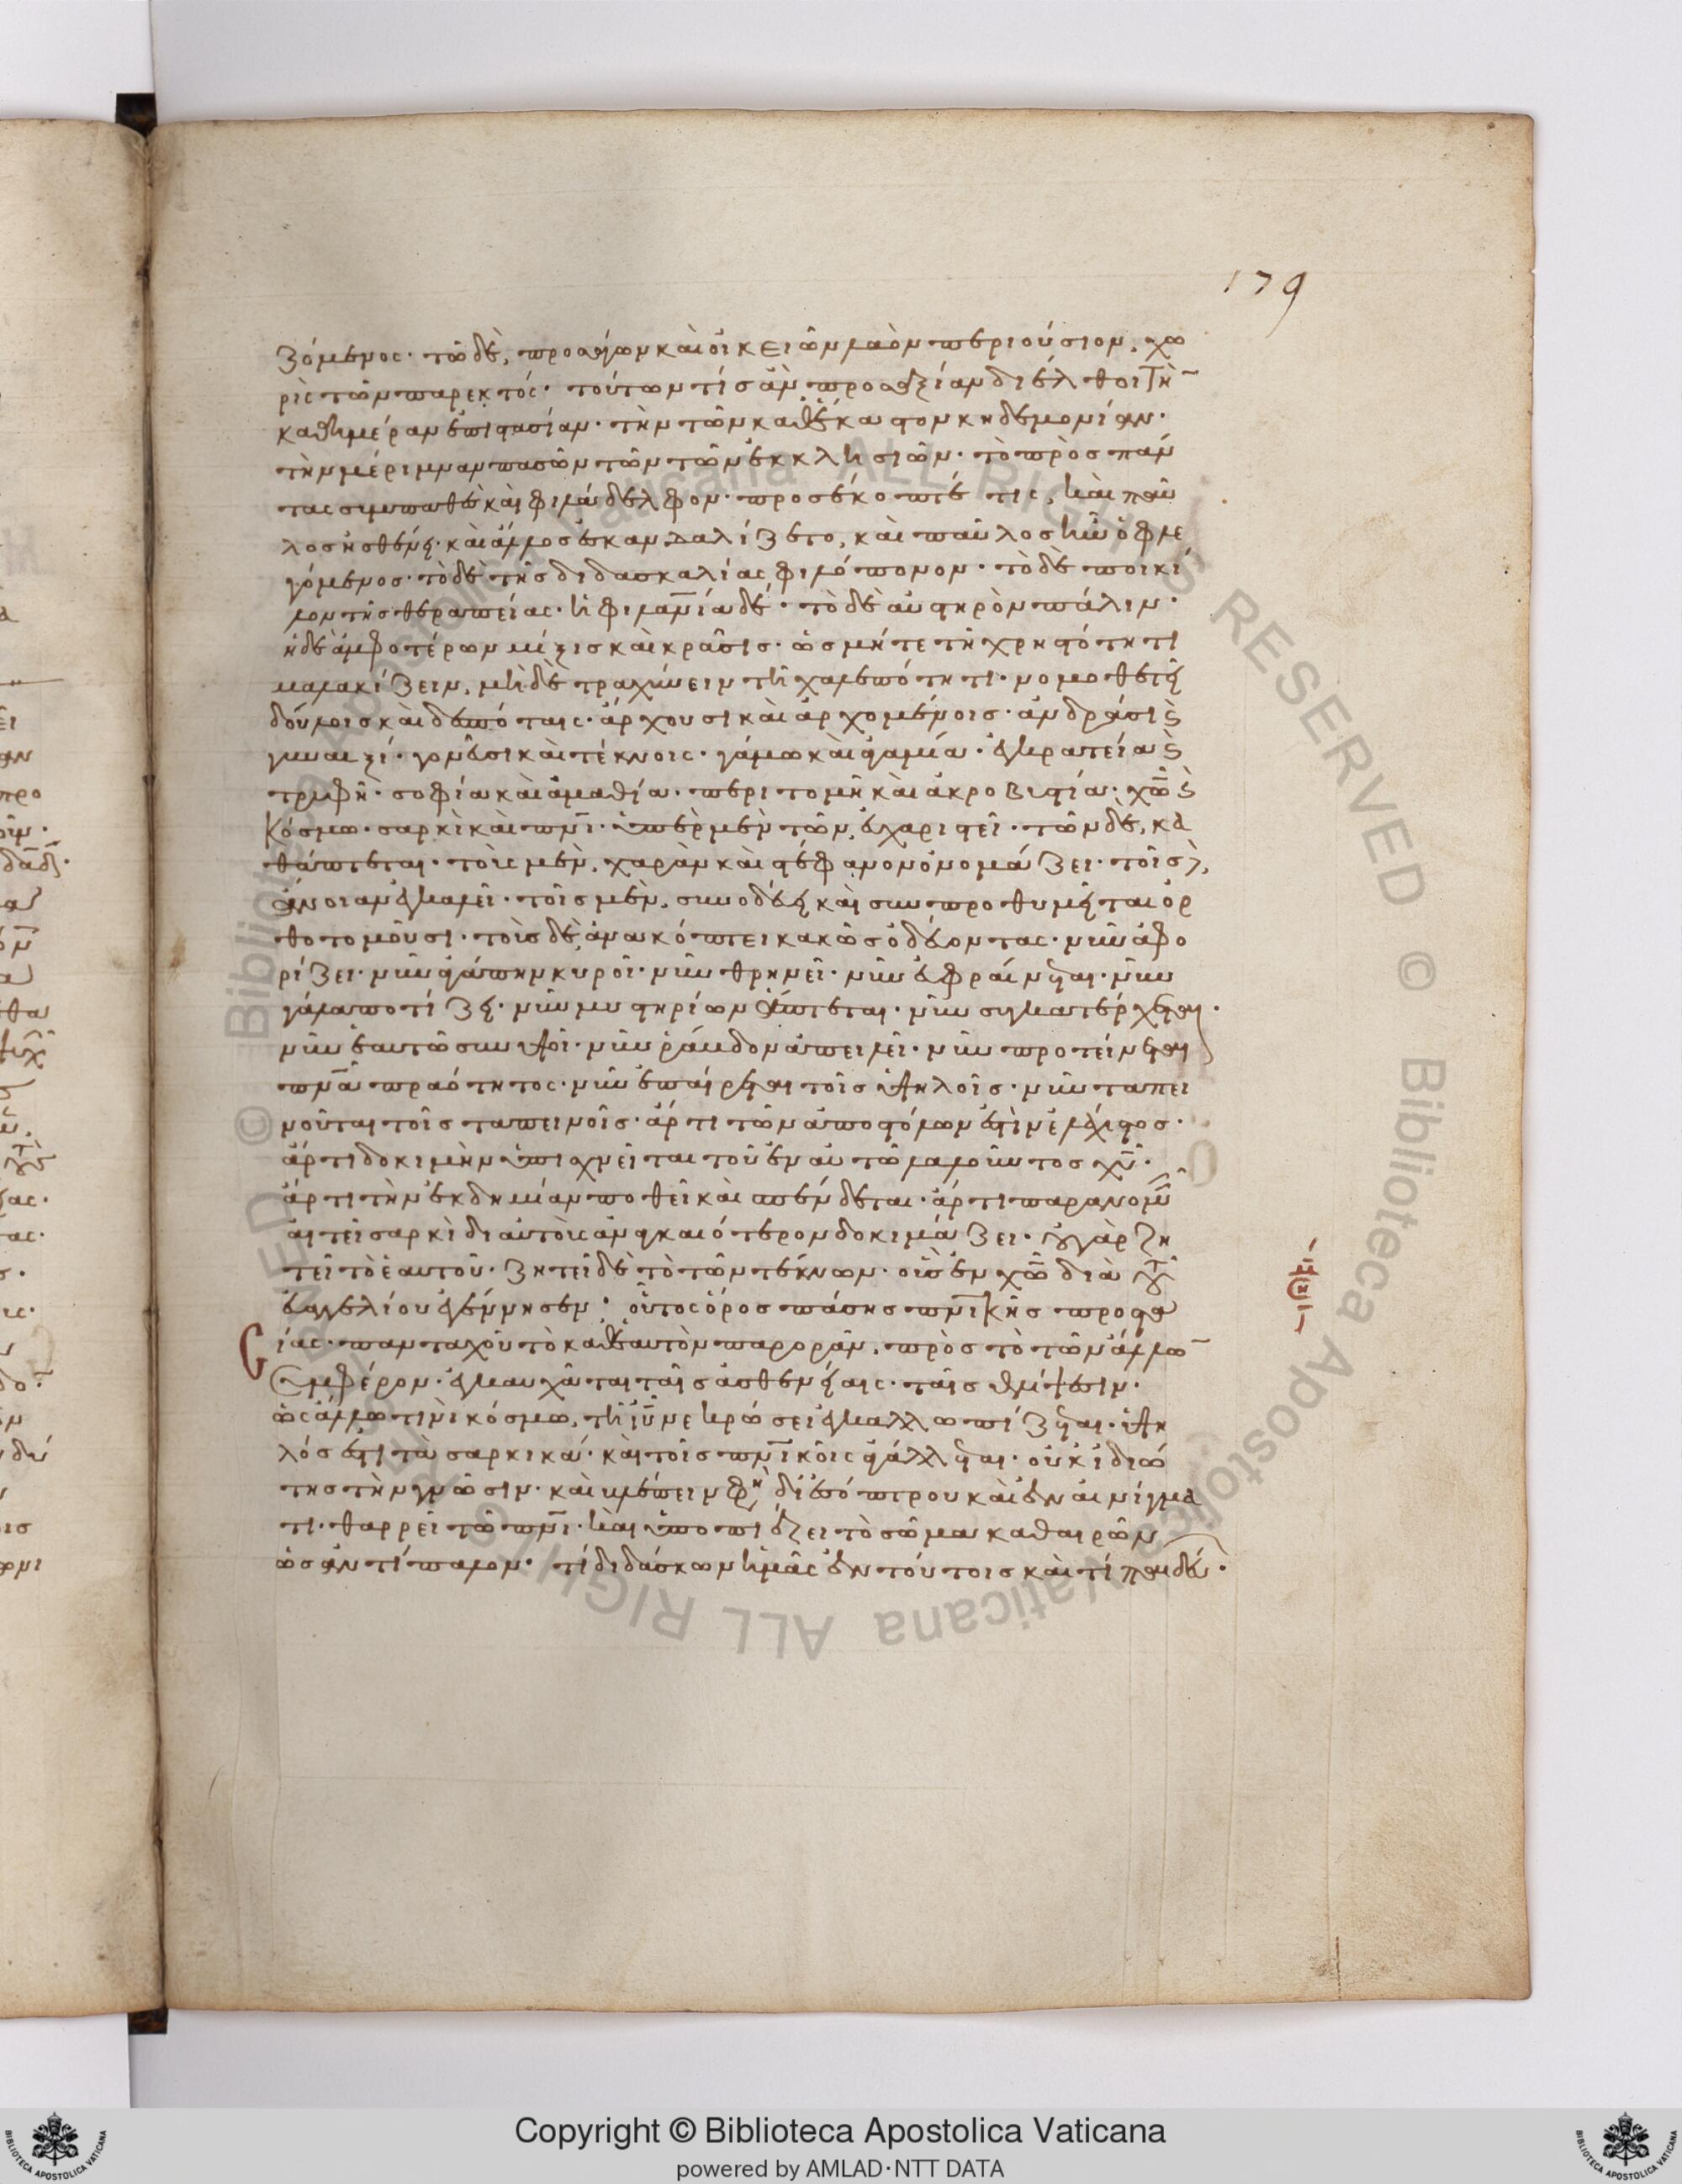 179
ζόμενος· τῶ δὲ, προσάγων καὶ οἰκειῶν λαὸν περιούσιον, χω
ρὶς τῶν παρεκτός· τούτων τίς ἂν πρὸς ἀξίαν διέλθοι τὴν
καθημέραν ἐπιστασίαν· τὴν τῶν καθέκαστον κηδεμονίαν·
τὴν μέριμναν πασῶν τῶν τῶν ἐκκλησιῶν· τὸ πρὸς πάν
τας συμπαθὲς καὶ φιλάδελφον· προσέκοπτέ τις, καὶ παῦ
λος ἠσθένει· καὶ ἄλλος ἐσκανδαλίζετο, καὶ παῦλος ἦν ὁ φλε
γόμενος· τὸ δὲ τῆς διδασκαλίας φιλόπονον· τὸ δὲ ποικί
λον τῆς θεραπείας· ἡ φιλανία δέ· τὸ δὲ αὐστηρὸν πάλιν·
ἡ δὲ ἀμφοτέρων μίξις καὶ κρᾶσις· ὡς μήτε τῆ χρηστότητι
μαλακίζειν, μὴ δὲ τραχύνειν τῆ χαλεπότητι· νομοθετεῖ
δούλοις καὶ δεσπόταις· ἄρχουσι καὶ ἀρχομένοις· ἀνδράσι καὶ
γυναιξί· γονεῦσι καὶ τέκνοις· γάμω καὶ ἀγαμία· ἐγκρατεία καὶ
τρυφῆ· σοφία καὶ ἀμαθία· περιτομῆ καὶ ἀκροβυστία· χῶ καὶ
κόσμω· σαρκὶ καὶ πνι· ὑπὲρ μὲν τῶν, εὐχαριστεῖ· τῶν δὲ, κα
θάπτεται· τοὺς μὲν, χαρὰν καὶ στέφανον ὀνομάζει· τοῖς δὲ,
ἄνοιαν ἐγκαλεῖ· τοῖς μὲν, συνοδεύει καὶ συμπροθυμεῖται ὀρ
θοτομοῦσι· τοὺς δὲ ἀνακόπτει κακῶς ὁδεύοντας· νῦν ἀφο
ρίζει· νῦν ἀγάπην κυροῖ· νῦν θρηνεῖ· νῦν εὐφραίνεται· νῦν
γάλα ποτίζει· νῦν μυστηρίων ἅπτεται· νῦν συγκατέρχεται·
νῦν ἑαυτῶ συνυψοῖ· νῦν ῥάβδον ἀπειλεῖ· νῦν προτείνεται
πνα πραότητος· νῦν ἐπαίρεται τοῖς ὑψηλοῖς· νῦν ταπει
νοῦται τοῖς ταπεινοῖς· ἄρτι τῶν ἀποστόλων ἐστὶν ἐλάχιστος·
ἄρτι δοκιμὴν ὑπισχνεῖται τοῦ ἐν αὐτῶ λαλοῦντος χυ·
ἄρτι τὴν ἐκδημίαν ποθεῖ καὶ σπένδεται· ἄρτι παραμονὴν
αὐτεῖ σαρκὶ δι αὐτοὺς ἀναγκαιότερον δοκιμάζει· οὐ γὰρ ζη
τεῖ τὸ ἑαυτοῦ· ζητεῖ δὲ τὸ τῶν τέκνων· οὓς ἐν χῶ διὰ τοῦ
εὐαγγελίου ἐγέννησεν· οὗτος ὅρος πάσης πνικῆς προστα
σίας· πανταχοῦ τὸ καθ ἑαυτὸν παρορᾶν, πρὸς τὸ τῶν ἄλλων
συμφέρον· ἐγκαυχᾶται ταῖς ἀσθενείαις· ταῖς θλίψεσιν·
ὡς ἄλλω τινὶ κόσμω, τῆ ιυ νεκρώσει ἐγκαλλωπίζεται· ὑψη
λός ἐστι τὰ σαρκικά· καὶ τοῖς πνικοῖς ἀγάλλεται· οὐκ ἰδιώ
της τὴν γνῶσιν· καὶ βλέπειν φησὶ δι ἐσόπτρου καὶ ἐν αἰνίγμα
τι· θαρρεῖ τῶ πνι· καὶ ὑποπιάζει τὸ σῶμα καθαιρῶν
ὡς ἀντίπαλον· τί διδάσκων ἡμᾶς ἐν τούτοις καὶ τί παιδεύων·